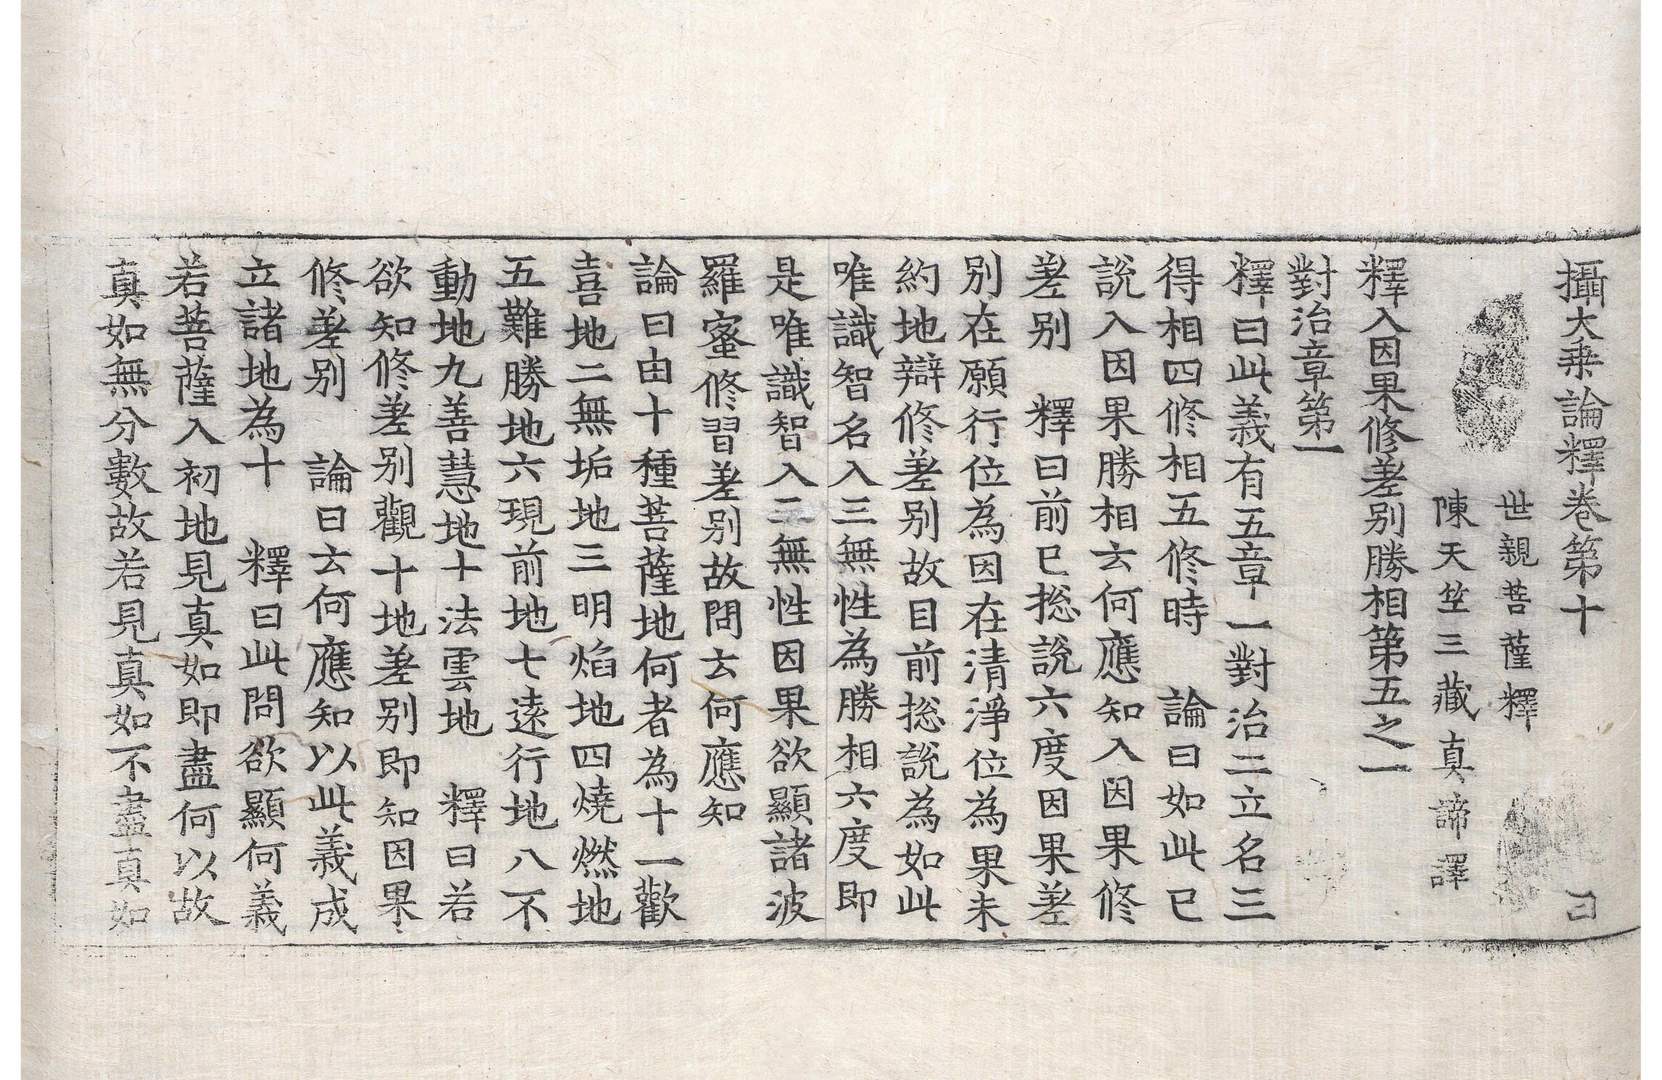 攝大乘論釋卷第十 㠯
世親菩薩釋
陳天竺三藏真諦譯
釋入因果修差别勝相第五之一
對治章第一
釋曰此義有五章一對治二立名三
得相四修相五修時 論曰如此已
說入因果勝相云何應知入因果修
差别 釋曰前已捴說六度因果差
别在願行位為因在清淨位為果未
約地辯修差别故目前捴說為如此
唯識智名入三無性為勝相六度即
是唯識智入三無性因果欲顯諸波
羅蜜修習差别故問云何應知
論曰由十種菩薩地何者為十一歡
喜地二無垢地三明焰地四燒燃地
五難勝地六現前地七遠行地八不
動地九善慧地十法雲地 釋曰若
欲知修差别觀十地差别即知因果
修差别 論曰云何應知以此義成
立諸地為十 釋曰此問欲顯何義
若菩薩入初地見真如即盡何以故
真如無分數故若見真如不盡真如